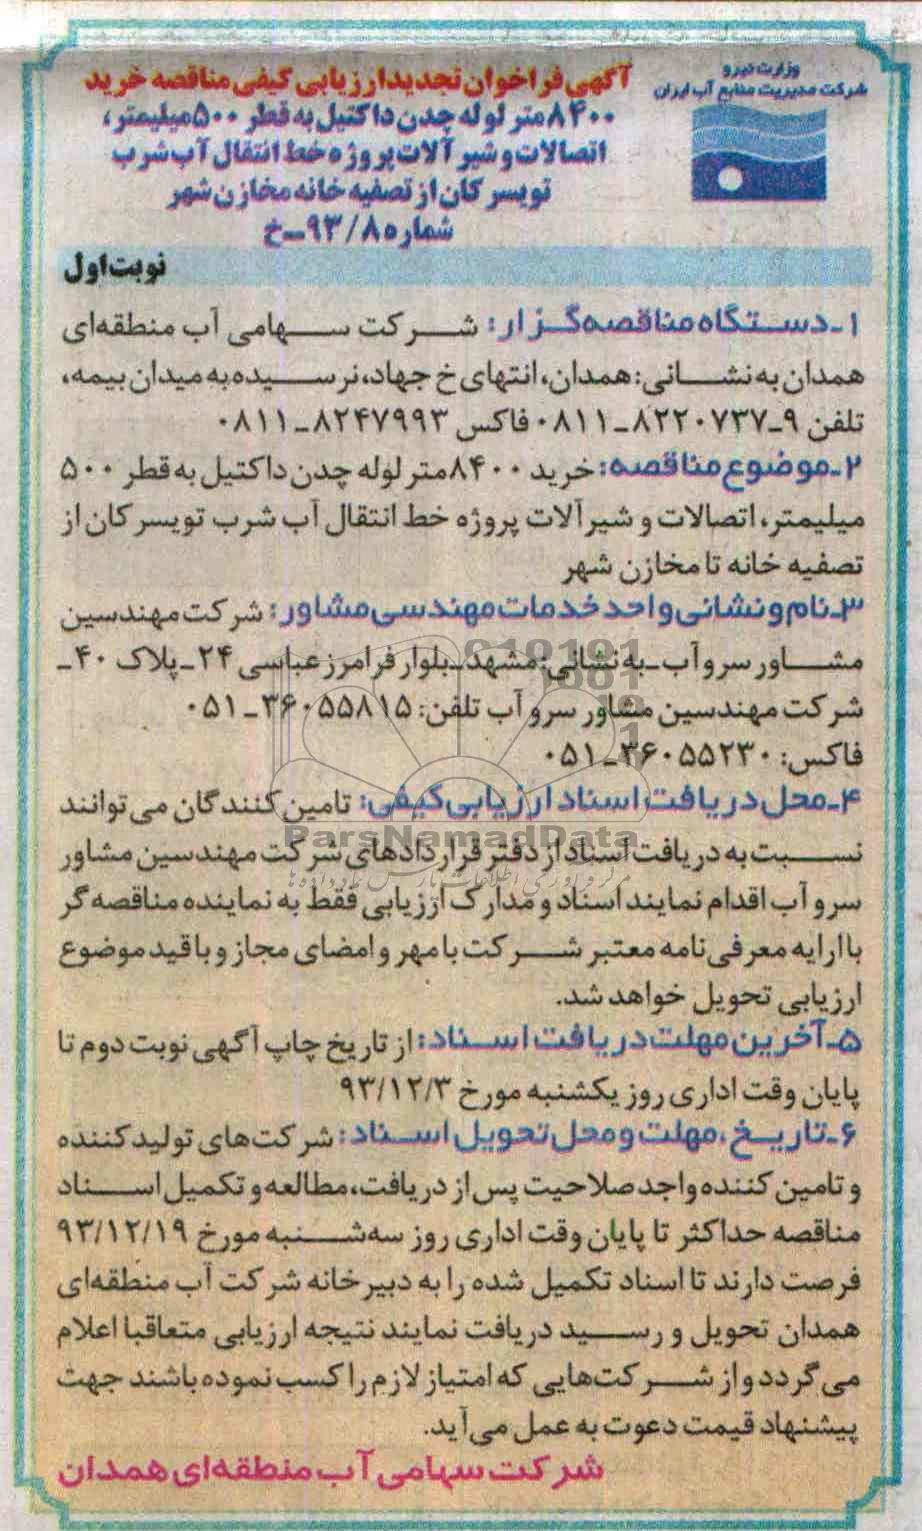 وزارت نیرو
شرکت مدیریت منابع آب ایران
آگهی فراخوان تجدید ارزیابی کیفی مناقصه خرید
۸۴۰۰ متر لوله چدن داکتیل به قطر ۵۰۰ میلیمتر،
اتصالات و شیرآلات پروژه خط انتقال آب شرب
تویسرکان از تصفیه خانه مخازن شهر
شماره ۹۳/۸-خ
نوبت اول
۱-دستگاه مناقصه‌گزار: شرکت سهامی آب منطقه‌ای
همدان به نشانی: همدان، انتهای خ جهاد، نرسیده به میدان بیمه،
تلفن ۹-۸۲۲۰۷۳۷-۰۸۱۱ فاکس ۸۲۴۷۹۹۳-۰۸۱۱
۲-موضوع مناقصه: خرید ۸۴۰۰ متر لوله چدن داکتیل به قطر ۵۰۰
میلیمتر، اتصالات و شیرآلات پروژه خط انتقال آب شرب تویسرکان از
تصفیه خانه تا مخازن شهر
۳-نام و نشانی واحد خدمات مهندسی مشاور: شرکت مهندسین
مشاور سروآب-به نشانی: مشهد-بلوار فرامرز عباسی ۲۴-پلاک ۴۰-
شرکت مهندسین مشاور سروآب تلفن: ۳۶۰۵۵۸۱۵-۰۵۱
فاکس: ۳۶۰۵۵۲۳۰-۰۵۱
۴-محل دریافت اسناد ارزیابی کیفی: تامین کنندگان می‌توانند
ParsNamadData
نسبت به دریافت اسناد از دفتر قراردادهای شرکت مهندسین مشاور
سروآب اقدام نمایند اسناد و مدارک ارزیابی فقط به نماینده مناقصه‌گر
با ارایه معرفی‌نامه معتبر شرکت با مهر و امضای مجاز و با قید موضوع
ارزیابی تحویل خواهد شد.
۵-آخرین مهلت دریافت اسناد: از تاریخ چاپ آگهی نوبت دوم تا
پایان وقت اداری روز یکشنبه مورخ ۹۳/۱۲/۳
۶-تاریخ، مهلت و محل تحویل اسناد: شرکت‌های تولید کننده
و تامین کننده واجد صلاحیت پس از دریافت، مطالعه و تکمیل اسناد
مناقصه حداکثر تا پایان وقت اداری روز سه‌شنبه مورخ ۹۳/۱۲/۱۹
فرصت دارند تا اسناد تکمیل شده را به دبیرخانه شرکت آب منطقه‌ای
همدان تحویل و رسید دریافت نمایند نتیجه ارزیابی متعاقبا اعلام
می‌گردد و از شرکت‌هایی که امتیاز لازم را کسب نموده باشند جهت
پیشنهاد قیمت دعوت به عمل می‌آید.
شرکت سهامی آب منطقه‌ای همدان